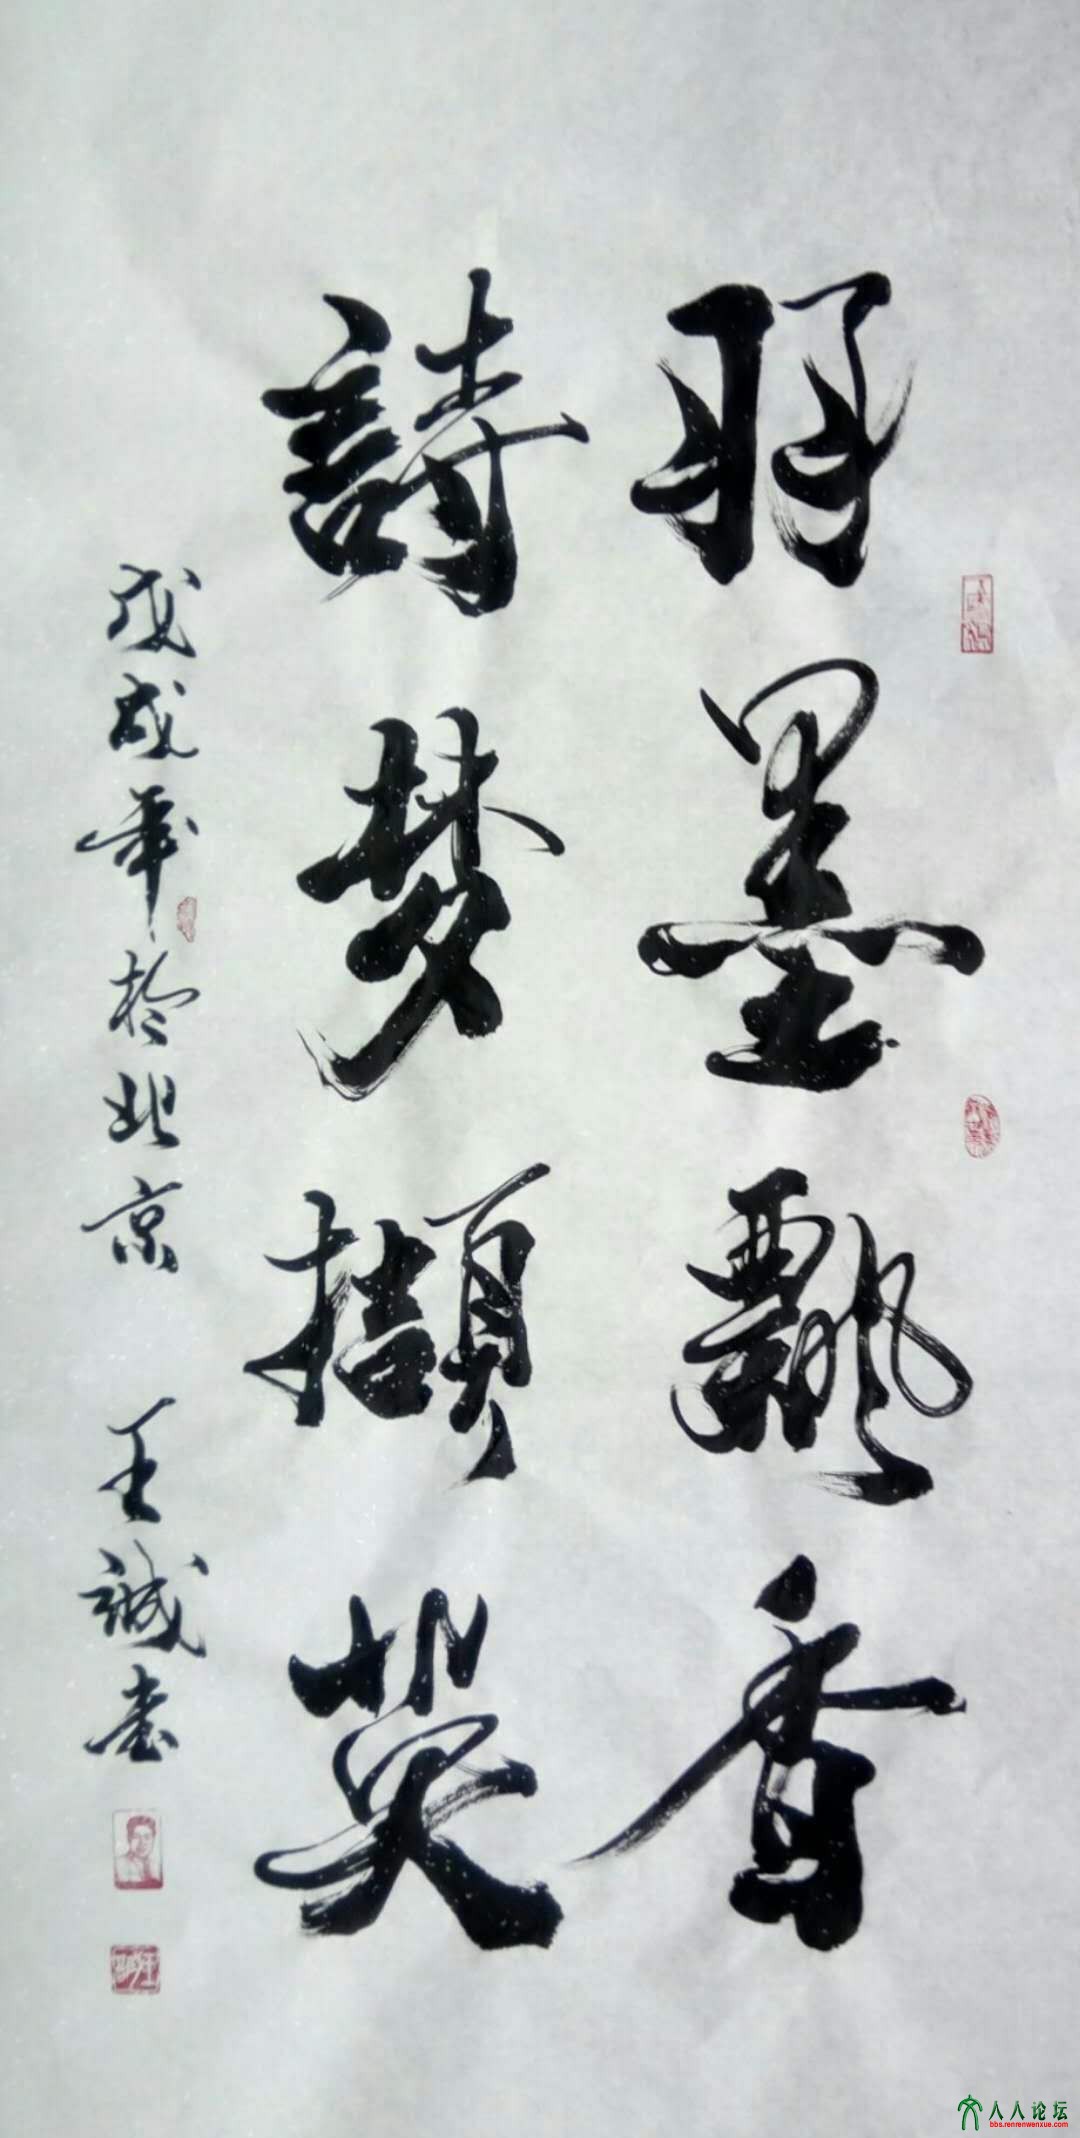 羽墨飄香
詩梦擷英
戊戌年於北京 王誠書
人人论坛
bbs.renrenwenxue.com